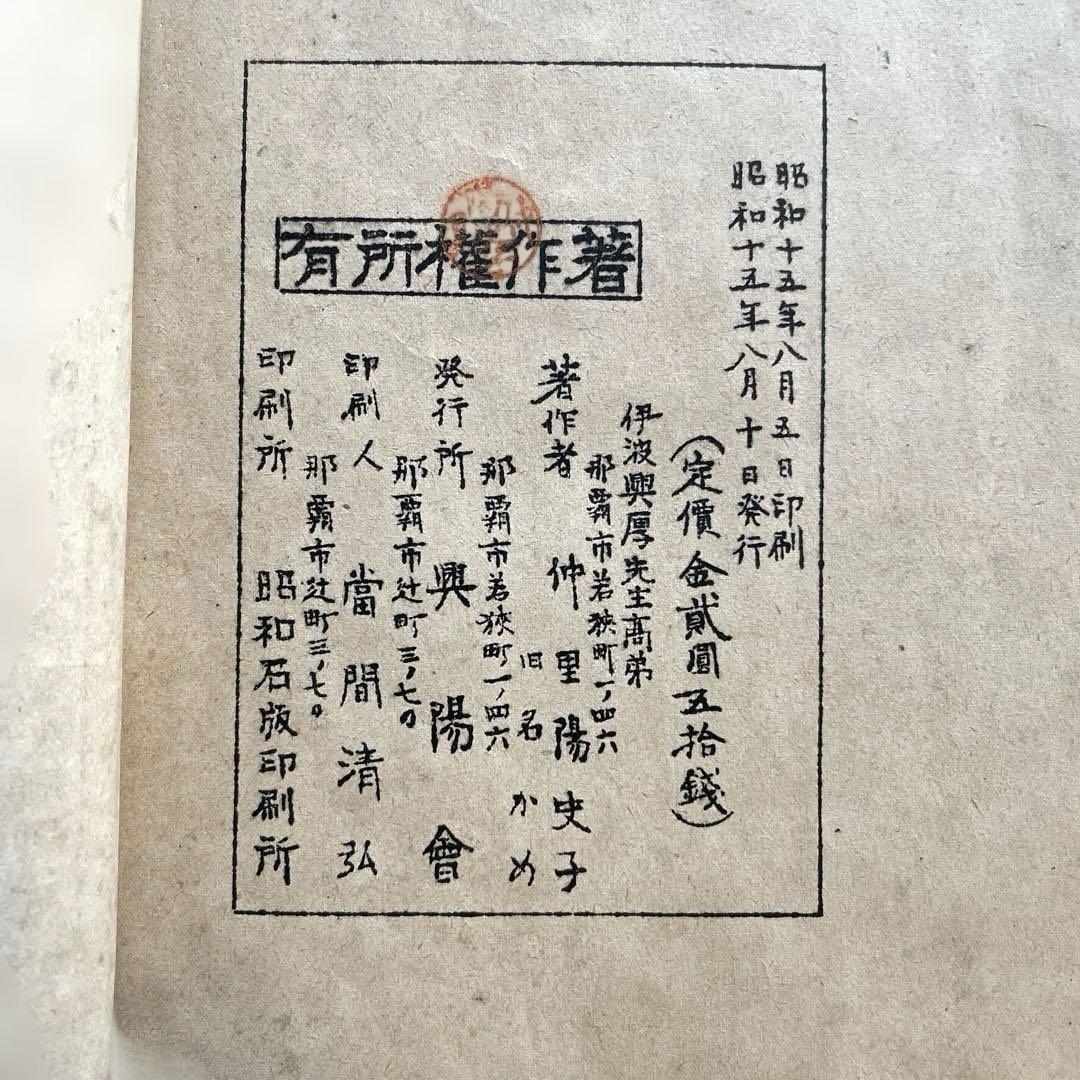 昭和十五年八月五日印刷
昭和十五年八月十日発行
(定價金貳圓五拾錢)
著作權所有
伊波興厚先生高弟
那覇市若狹町一ノ四六
著作者 仲里陽史子
旧名 かめ
那覇市若狹町一ノ四六
発行所 興陽會
那覇市辻町三ノ七〇
印刷人 當間清弘
那覇市辻町三ノ七〇
印刷所 昭和石版印刷所